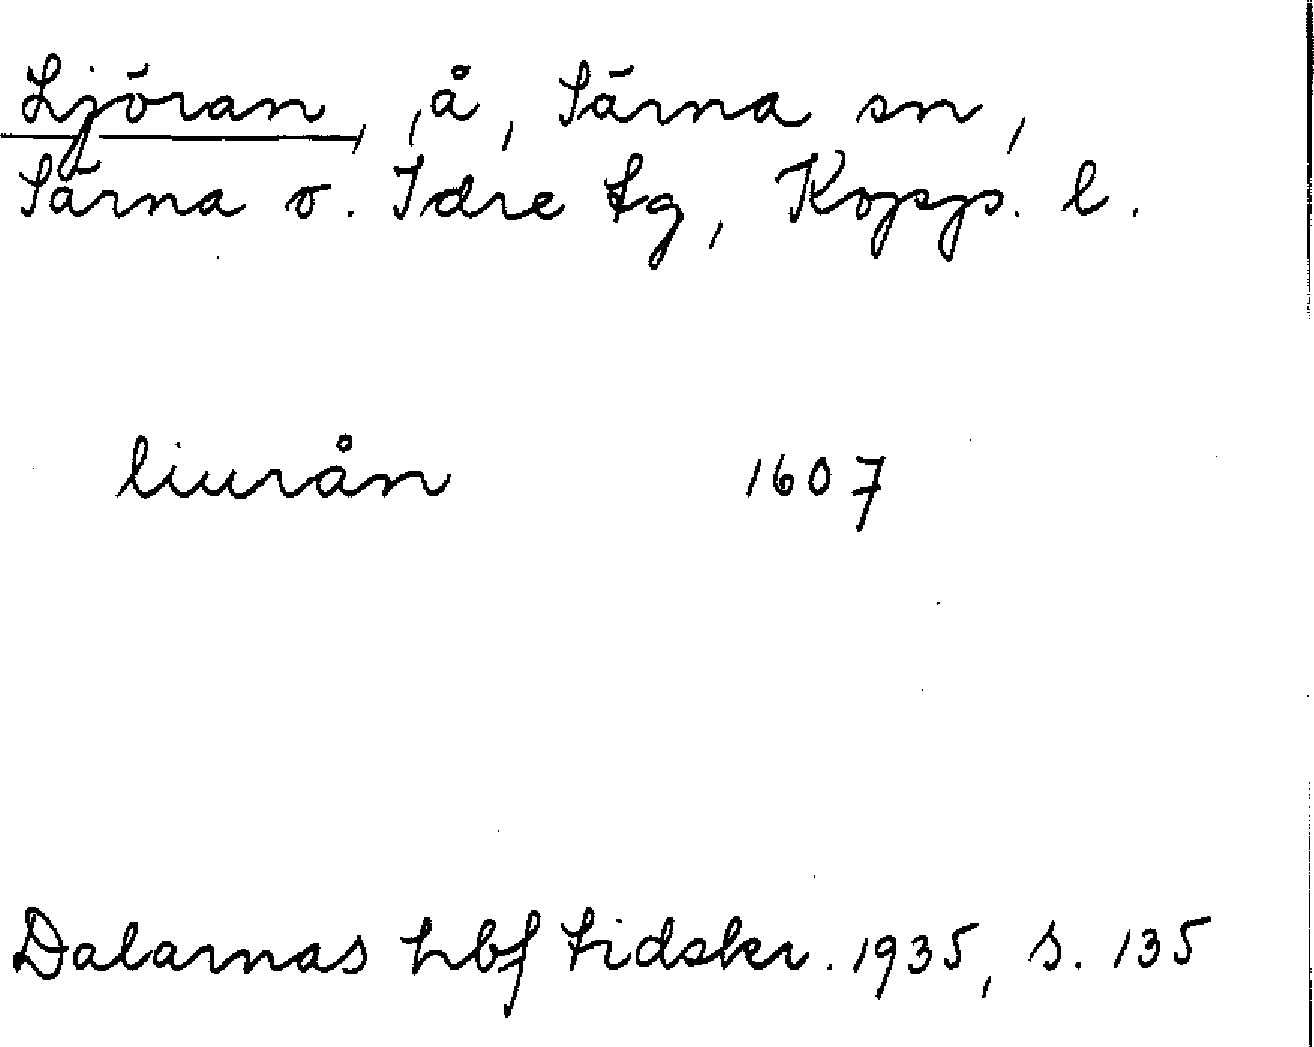 Ljöran, ,å, Särna sn,
Särna o. Idre tg, Kopp. l.
liurån 1607
Dalarnas hbf tidskr. 1935, s. 135